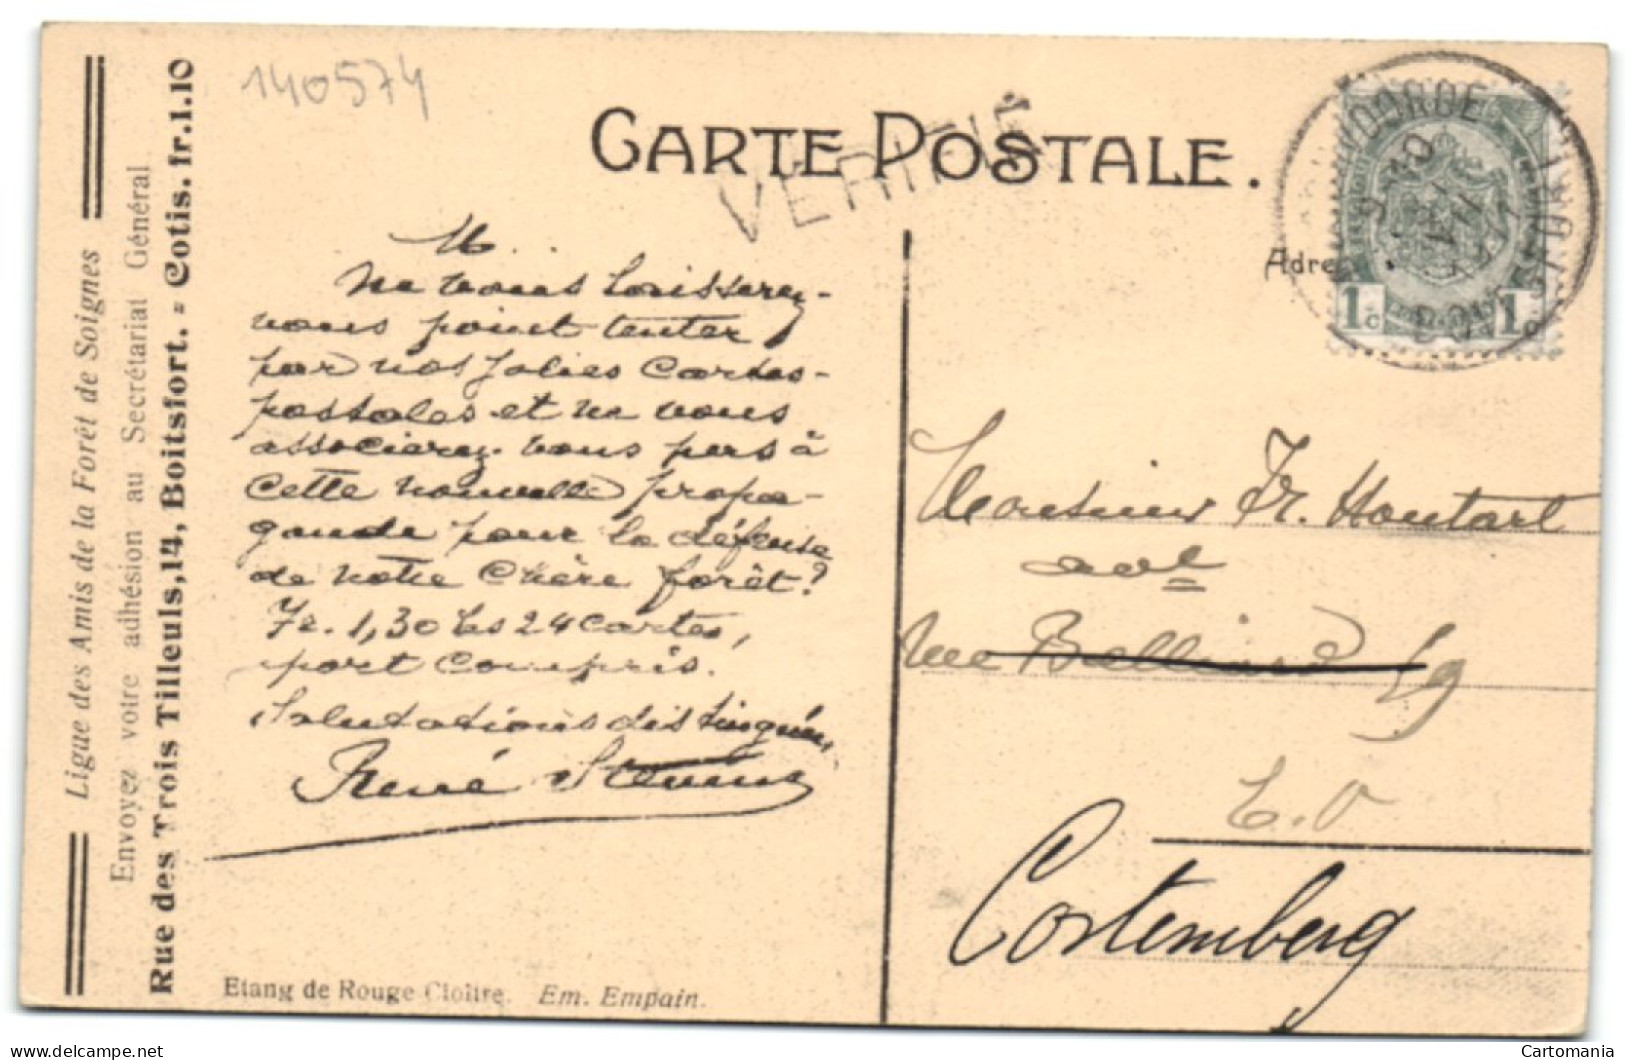 140574
CARTE POSTALE.
VÉRIFIÉ
Ligue des Amis de la Forêt de Soignes
Envoyez votre adhésion au Secrétariat Général
Rue des Trois Tilleuls, 14, Boitsfort. = Cotis. fr. 1.10
M.
Ne vous laisserez-
vous point tenter
par nos jolies Cartes-
postales et ne vous
associerez-vous pas à
cette nouvelle propa-
gande pour la défense
de notre Chère forêt?
Fr. 1,30 les 24 cartes,
port compris.
Salutations distinguées
René Stevens
Etang de Rouge Cloître. Em. Empain.
Adre
WATERMAEL
BOITSFORT
1c 1c
Monsieur Fr. Houtart
Rue Belliard 59
E.V
Cortemberg
Cartomania